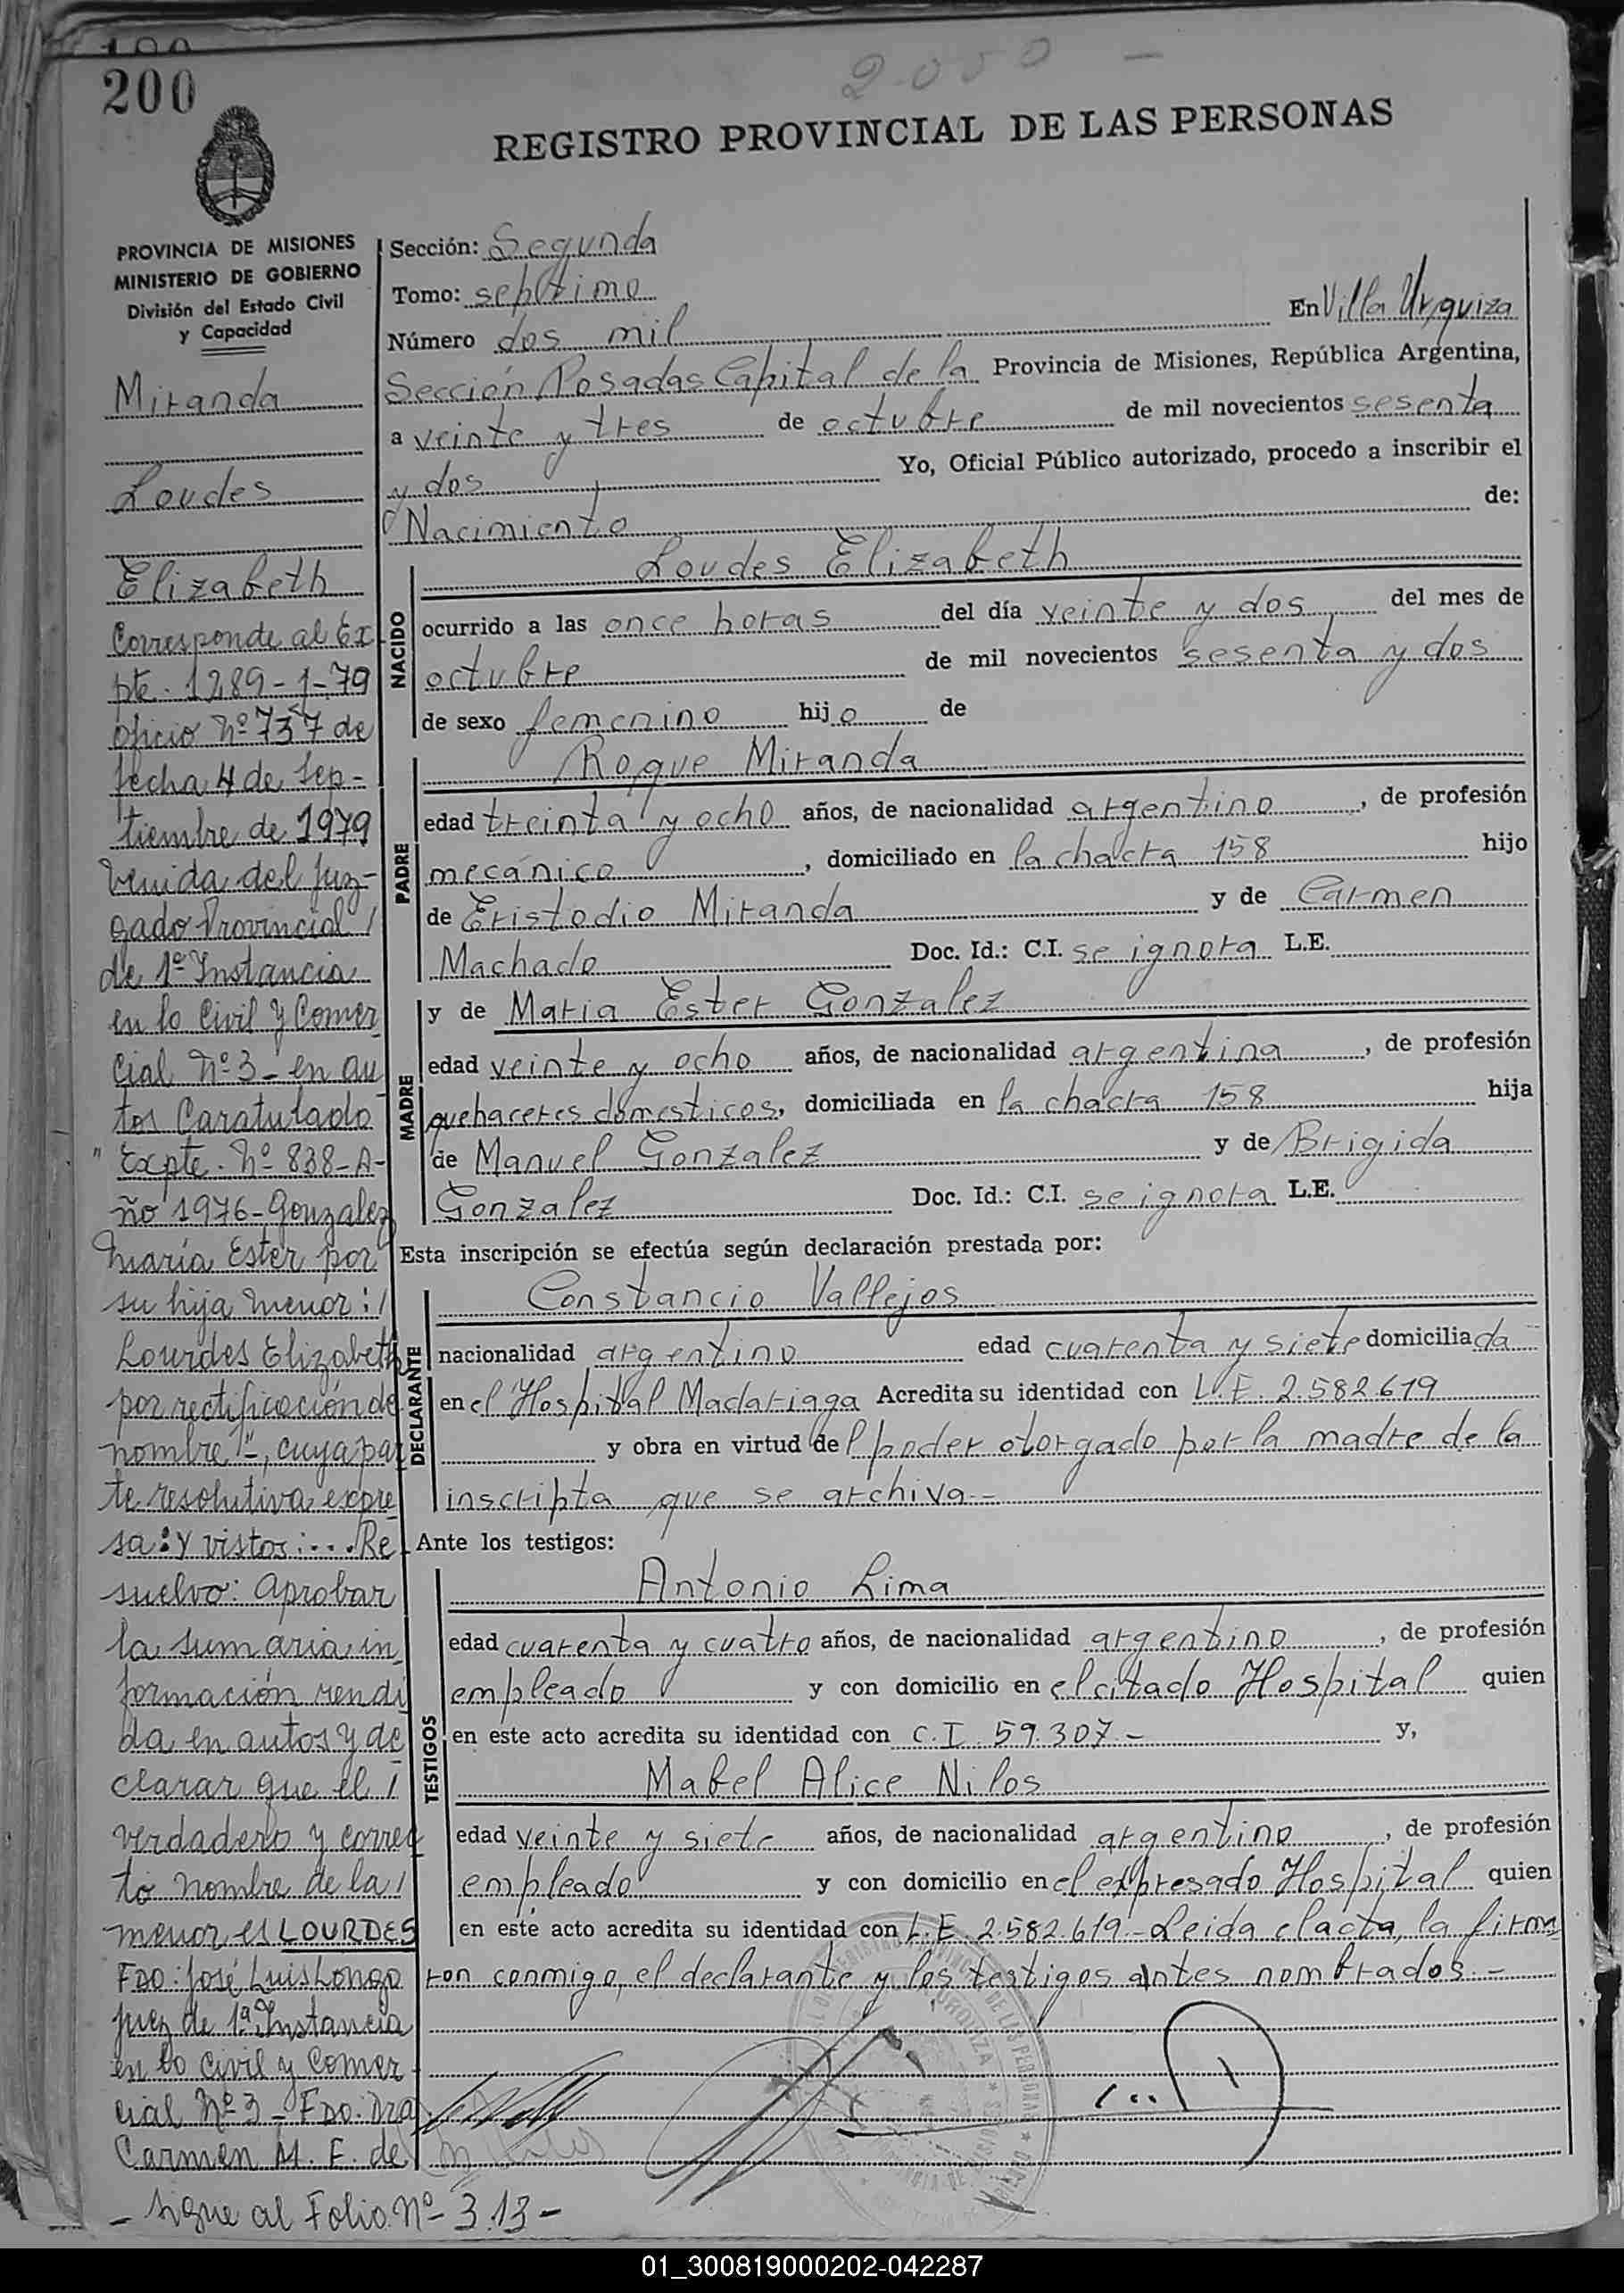 200
2.050 -
REGISTRO PROVINCIAL DE LAS PERSONAS
PROVINCIA DE MISIONES
MINISTERIO DE GOBIERNO
División del Estado Civil
y Capacidad
Miranda
Loudes
Elizabeth
Corresponde al Ex
pte. 1289-1-79
Oficio Nº 737 de
fecha 4 de Sep-
tiembre de 1979
venida del Juz-
gado Provincial /
de 1º Instancia
en lo Civil y Comer
cial Nº 3 - en au
tos Caratulado
" Expte. Nº 838-A-
ño 1976 - Gonzalez
María Ester por
su hija menor: /
Lourdes Elizabeth
por rectificación de
nombre 1º-, cuya par
te resolutiva expre
sa: y vistos: ... Re
suelvo: Aprobar
la sumaria in
formación rendi
da en autos y de
clarar que el /
verdadero y correc
to nombre de la /
menor es LOURDES
FDO: José Luis Longo
Juez de 1ª Instancia
en lo Civil y Comer
cial Nº 3 - FDO. Dra
Carmen M. E. de
- Sigue al Folio Nº 313 -
Sección: Segunda
Tomo: septimo
Número dos mil En Villa Urquiza
Sección Posadas Capital de la Provincia de Misiones, República Argentina,
a veinte y tres de octubre de mil novecientos sesenta
y dos Yo, Oficial Público autorizado, procedo a inscribir el
Nacimiento de:
NACIDO
Loudes Elizabeth
ocurrido a las once horas del día veinte y dos del mes de
octubre de mil novecientos sesenta y dos
de sexo femenino hijo de
PADRE
Roque Miranda
edad treinta y ocho años, de nacionalidad argentino, de profesión
mecánico, domiciliado en la chacra 158 hijo
de Eristodio Miranda y de Carmen
Machado Doc. Id.: C.I. se ignora L.E.
MADRE
y de Maria Ester Gonzalez
edad veinte y ocho años, de nacionalidad argentina, de profesión
quehaceres domesticos, domiciliada en la chacra 158 hija
de Manuel Gonzalez y de Brigida
Gonzalez Doc. Id.: C.I. se ignora L.E.
Esta inscripción se efectúa según declaración prestada por:
DECLARANTE
Constancio Vallejos
nacionalidad argentino edad cuarenta y siete domiciliada
en el Hospital Madariaga Acredita su identidad con L.E. 2.582.619
y obra en virtud del poder otorgado por la madre de la
inscripta que se archiva -
Ante los testigos:
TESTIGOS
Antonio Lima
edad cuarenta y cuatro años, de nacionalidad argentino, de profesión
empleado y con domicilio en el citado Hospital quien
en este acto acredita su identidad con C.I. 59.307 - y,
Mabel Alice Nilos
edad veinte y siete años, de nacionalidad argentino, de profesión
empleado y con domicilio en el expresado Hospital quien
en este acto acredita su identidad con L.E. 2.582.619 - Leida el acta, la firma
ron conmigo, el declarante y los testigos antes nombrados. -
01_300819000202-042287